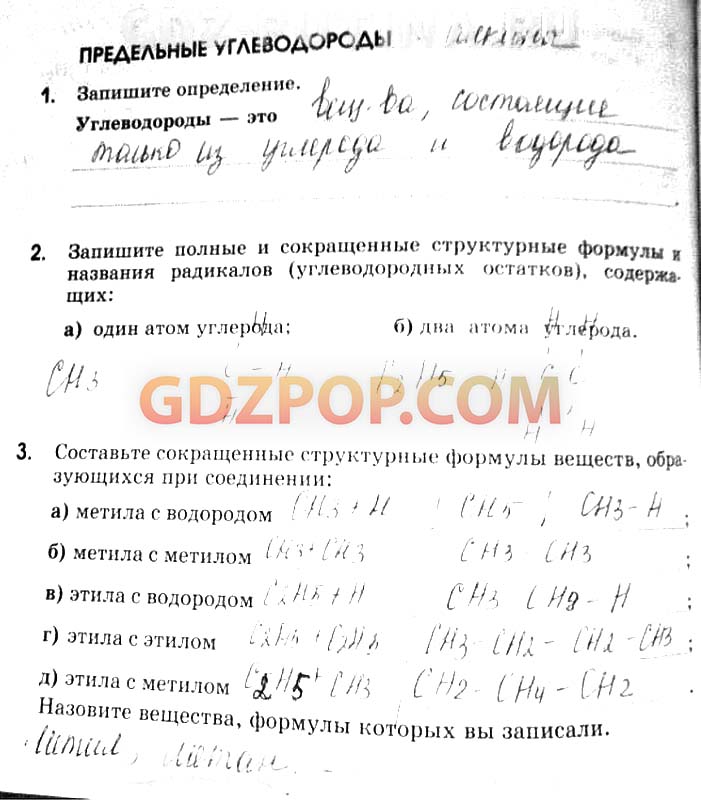 ПРЕДЕЛЬНЫЕ УГЛЕВОДОРОДЫ
1. Запишите определение.
Углеводороды — это вещ-ва, состоящие
только из углерода и водорода
2. Запишите полные и сокращенные структурные формулы и
названия радикалов (углеводородных остатков), содержа-
щих:
а) один атом углерода; б) два атома углерода.
CH3 C - H C2H5 H C C
H H H
GDZPOP.COM
3. Составьте сокращенные структурные формулы веществ, обра-
зующихся при соединении:
а) метила с водородом CH3 + H CH5 ; CH3 - H ;
б) метила с метилом CH3 + CH3 CH3 - CH3 ;
в) этила с водородом C2H5 + H CH3 CH2 - H ;
г) этила с этилом C2H5 + C2H5 CH3 - CH2 - CH2 - CH3 ;
д) этила с метилом C2H5 + CH3 CH2 - CH4 - CH2 .
Назовите вещества, формулы которых вы записали.
Метил, Метан.